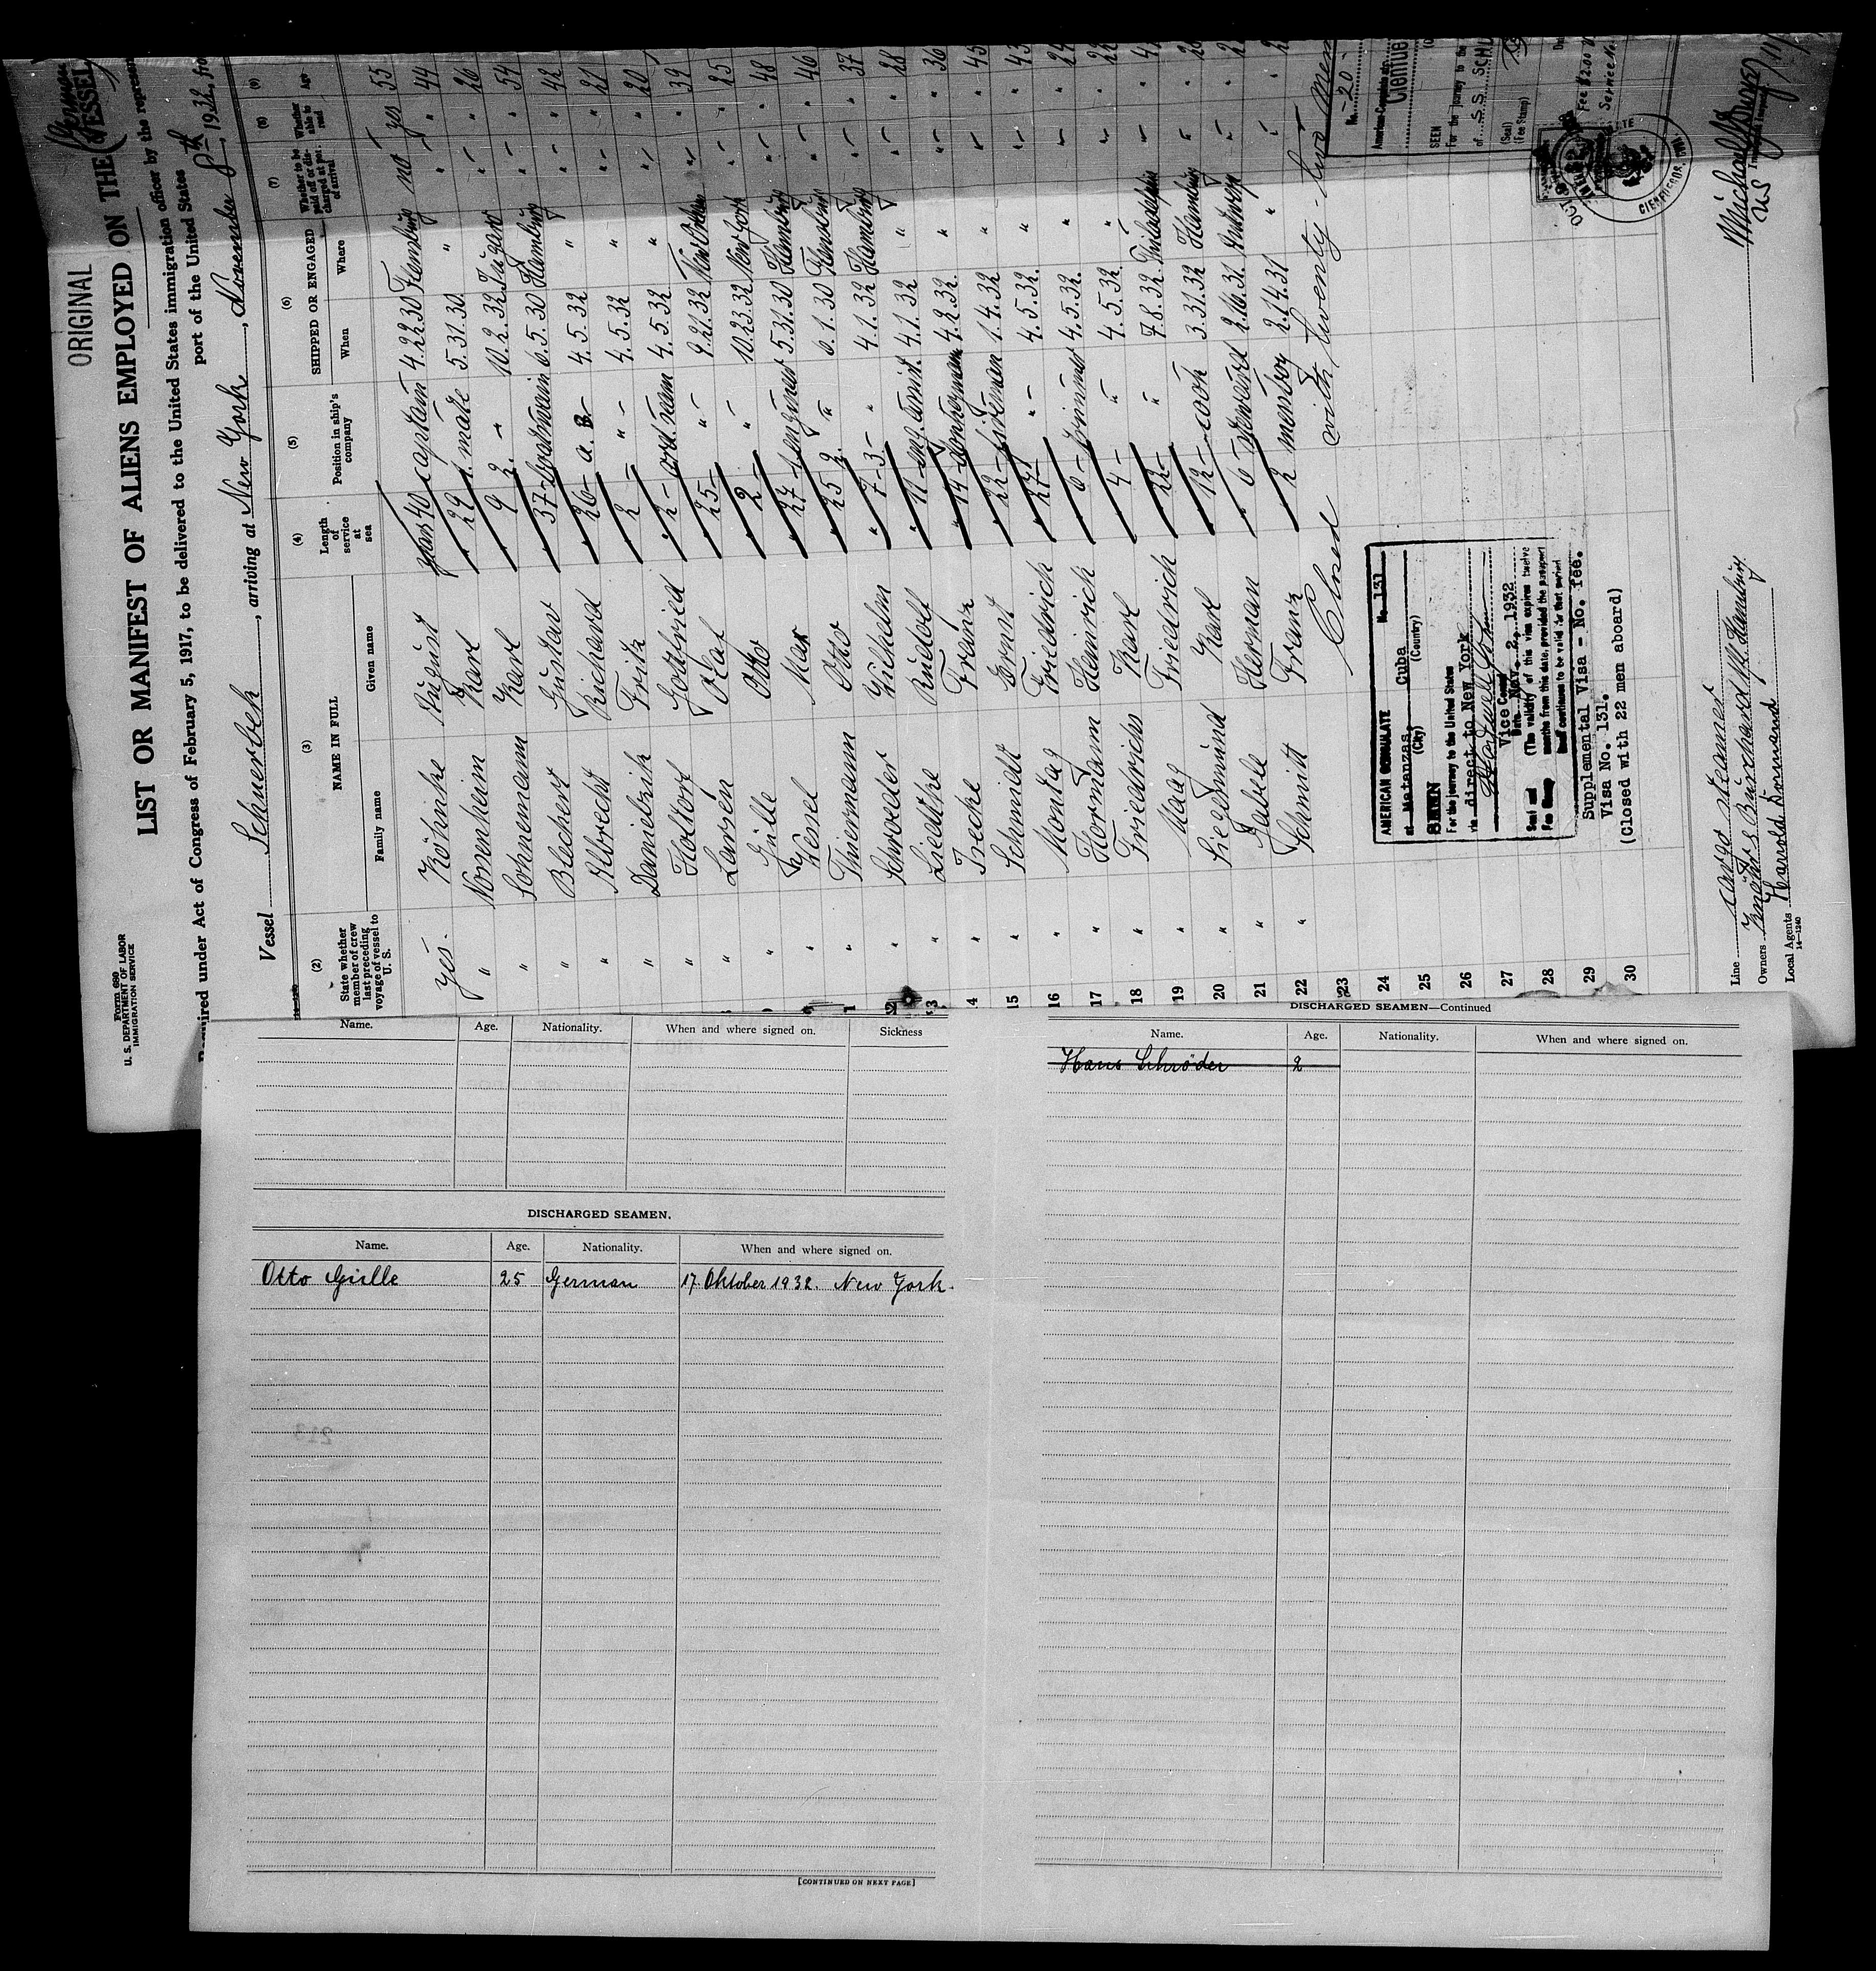 ORIGINAL
German
VESSEL
LIST OR MANIFEST OF ALIENS EMPLOYED ON THE
Form 680
U. S. DEPARTMENT OF LABOR
IMMIGRATION SERVICE
Required under Act of Congress of February 5, 1917, to be delivered to the United States immigration officer by the represen
port of the United States
Vessel Schuerbek, arriving at New York, November 8th, 1932, fro
(2) (3) (4) (5) (6) (7) (8) (9)
State whether member of crew last preceding voyage of vessel to U. S.
NAME IN FULL
Family name Given name
Length of service at sea
Position in ship's company
SHIPPED OR ENGAGED
When Where
Whether to be paid off or discharged at port of arrival
Whether able to read
Age
yes. Köhnke August years 40 captain 4.22.30 Flensburg no yes 55
" Nonnenheim Karl " 29 1. mate 5.31.30 " " " 44
" Sohnemann Karl " 9 2. " 10.2.32 " " 26
" Blechert Gustav " 37 6.5.30 Hamburg " " 54
" Albrecht Richard " 26 a. B. 4.5.32 " " " 42
" Danielzik Fritz " 2 " 4.5.32 " " " 21
" Holtorf Gottfried " 2 ord. seam 4.5.32 " " " 20
" Larsen Olaf " 25 " 9.21.32 New Orleans " " 39
" Gülle Otto " 2 " 10.23.32 New York " " 25
" Wessel Max " 27 1. engineer 5.31.30 Hamburg " " 48
" Thiermann Otto " 25 2. " 6.1.30 Flensburg " " 46
" Schroeder Wilhelm " 7 3. " 4.1.32 Hamburg " " 37
" Liedtke Rudolf " 11 eng. assist. 4.1.32 " " " 28
" Franz " 14 donkeyman 4.2.32 " " " 36
" Schmidt Ernst " 22 firemen 1.4.32 " " " 45
" Montag Friedrich " 27 " 4.5.32 " " " 43
" Hormann Heinrich " 6 trimmer 4.5.32 " " " 24
" Friedrichs Karl " 4 " 4.5.32 " " " 22
" Maag Friedrich " 22 " 7.8.32 Philadelphia " "
" Siegmund Karl " 12 cook 3.31.32 Hamburg " "
" Jabele Herman " 6 steward 2.16.31 Antwerp " "
" Schmitt Franz " 2 messboy 2.14.31 " " "
14 15 16 17 18 19 20 21 22 23 24 25 26 27 28 29 30
Closed with twenty-two men
AMERICAN CONSULATE No. 131
at Matanzas, Cuba
(City) (Country)
SEEN
For the journey to the United States
via direct to New York
Vice Consul
Date Nov. 2, 1932
(The validity of this visa expires twelve
months from this date, provided the passport
continues to be valid for that period
Seal and
Fee Stamp
Supplemental Visa - No. fee.
Visa No. 131.
(Closed with 22 men aboard)
No. -20-
American Consulate at
Cienfue
SEEN
For the journey to the
of S.S. SCHU
(Seal)
(Fee Stamp)
Fee $2.00
Service No.
OCT
CIENFUEGOS,
Line cargo steamer
Owners Knöhr & Burchard Nfl. Hamburg
Local Agents Harrold Dormand
14—1240
Name. Age. Nationality. When and where signed on. Sickness
DISCHARGED SEAMEN.
Name. Age. Nationality. When and where signed on.
Otto Gülle 25 German 17. Oktober 1932. New York.
[CONTINUED ON NEXT PAGE]
DISCHARGED SEAMEN—Continued
Name. Age. Nationality. When and where signed on.
Hans Schröder 2
213